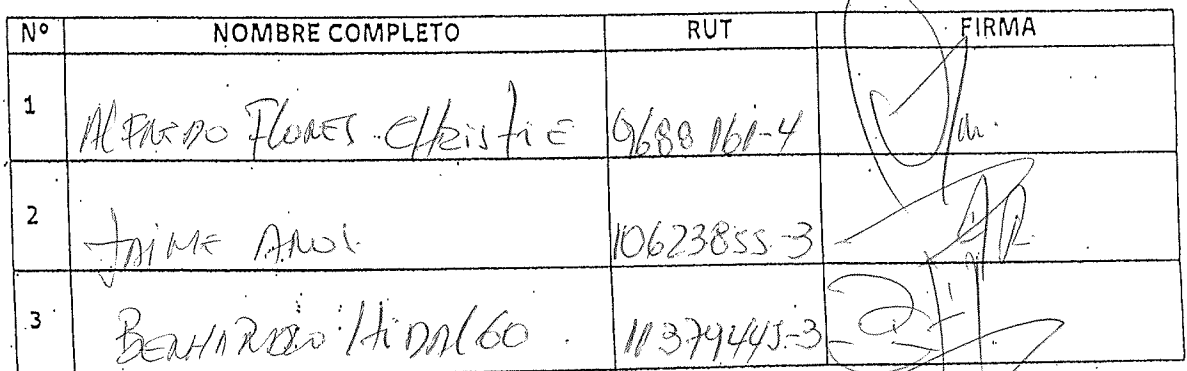 Nº NOMBRE COMPLETO RUT FIRMA
1 ALFREDO FLORES CHRISTIE 9688161-4
2 JAIME 10623855-3
3 BERNARDO HIDALGO 11379445-3